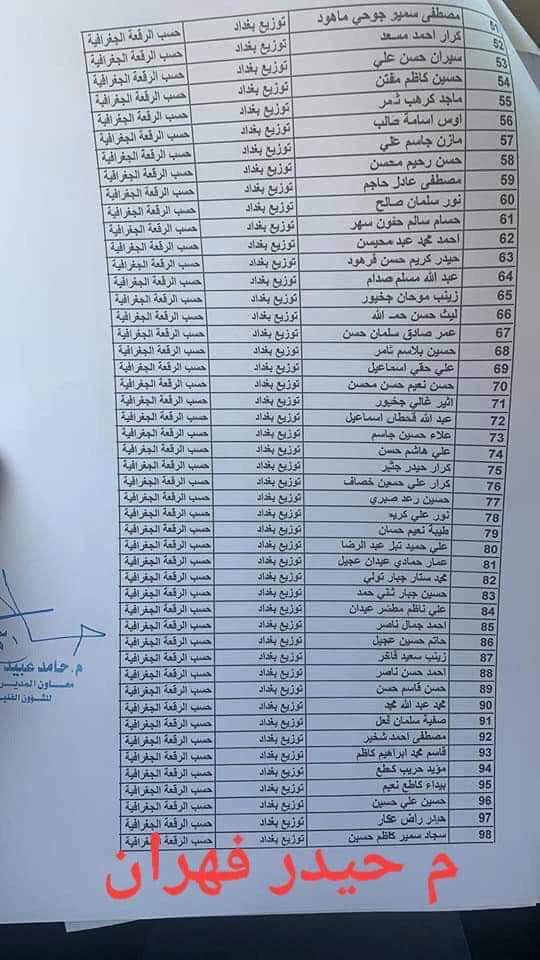 51 مصطفى سمير جوحي ماهود توزيع بغداد حسب الرقعة الجغرافية
52 كرار احمد مسعد توزيع بغداد حسب الرقعة الجغرافية
53 سيران حسن علي توزيع بغداد حسب الرقعة الجغرافية
54 حسين كاظم مفتن توزيع بغداد حسب الرقعة الجغرافية
55 ماجد كرهب ثمر توزيع بغداد حسب الرقعة الجغرافية
56 اوس اسامة طالب توزيع بغداد حسب الرقعة الجغرافية
57 مازن جاسم علي توزيع بغداد حسب الرقعة الجغرافية
58 حسن رحيم محسن توزيع بغداد حسب الرقعة الجغرافية
59 مصطفى عادل حاجم توزيع بغداد حسب الرقعة الجغرافية
60 نور سلمان صالح توزيع بغداد حسب الرقعة الجغرافية
61 حسام سالم حفون سهر توزيع بغداد حسب الرقعة الجغرافية
62 احمد محمد عبد محيسن توزيع بغداد حسب الرقعة الجغرافية
63 حيدر كريم حسن فرهود توزيع بغداد حسب الرقعة الجغرافية
64 عبد الله مسلم صدام توزيع بغداد حسب الرقعة الجغرافية
65 زينب موحان جخيور توزيع بغداد حسب الرقعة الجغرافية
66 ليث حسن حمد الله توزيع بغداد حسب الرقعة الجغرافية
67 عمر صادق سلمان حسن توزيع بغداد حسب الرقعة الجغرافية
68 حسين بلاسم ثامر توزيع بغداد حسب الرقعة الجغرافية
69 علي حقي اسماعيل توزيع بغداد حسب الرقعة الجغرافية
70 حسن نعيم حسن محسن توزيع بغداد حسب الرقعة الجغرافية
71 اثير غالي جخيور توزيع بغداد حسب الرقعة الجغرافية
72 عبد الله قحطان اسماعيل توزيع بغداد حسب الرقعة الجغرافية
73 علاء حسين جاسم توزيع بغداد حسب الرقعة الجغرافية
74 علي هاشم حسن توزيع بغداد حسب الرقعة الجغرافية
75 كرار حيدر جثير توزيع بغداد حسب الرقعة الجغرافية
76 كرار علي حسين خصاف توزيع بغداد حسب الرقعة الجغرافية
77 حسين رعد صبري توزيع بغداد حسب الرقعة الجغرافية
78 نور علي كريم توزيع بغداد حسب الرقعة الجغرافية
79 طيبة نعيم حسان توزيع بغداد حسب الرقعة الجغرافية
80 علي حميد عبد الرضا توزيع بغداد حسب الرقعة الجغرافية
81 عمار حمادي عيدان عجيل توزيع بغداد حسب الرقعة الجغرافية
82 محمد ستار جبار تولي توزيع بغداد حسب الرقعة الجغرافية
83 حسين جبار ثني حمد توزيع بغداد حسب الرقعة الجغرافية
84 علي ناظم مطشر عيدان توزيع بغداد حسب الرقعة الجغرافية
85 احمد جمال ناصر توزيع بغداد حسب الرقعة الجغرافية
86 حاتم حسين عجيل توزيع بغداد حسب الرقعة الجغرافية
87 زينب سعيد فاخر توزيع بغداد حسب الرقعة الجغرافية
88 احمد حسن ناصر توزيع بغداد حسب الرقعة الجغرافية
89 حسن قاسم حسن توزيع بغداد حسب الرقعة الجغرافية
90 محمد عبد الله محمد توزيع بغداد حسب الرقعة الجغرافية
91 صفية سلمان فعل توزيع بغداد حسب الرقعة الجغرافية
92 مصطفى احمد شخير توزيع بغداد حسب الرقعة الجغرافية
93 قاسم محمد ابراهيم كاظم توزيع بغداد حسب الرقعة الجغرافية
94 مؤيد حريب كطع توزيع بغداد حسب الرقعة الجغرافية
95 بيداء كاطع نعيم توزيع بغداد حسب الرقعة الجغرافية
96 حسين علي حسين توزيع بغداد حسب الرقعة الجغرافية
97 حيدر راض عكار توزيع بغداد حسب الرقعة الجغرافية
98 سجاد سمير كاظم حسين توزيع بغداد حسب الرقعة الجغرافية
م.حامد عبيد
معاون المدير
للشؤون الفنية
م حيدر فهران